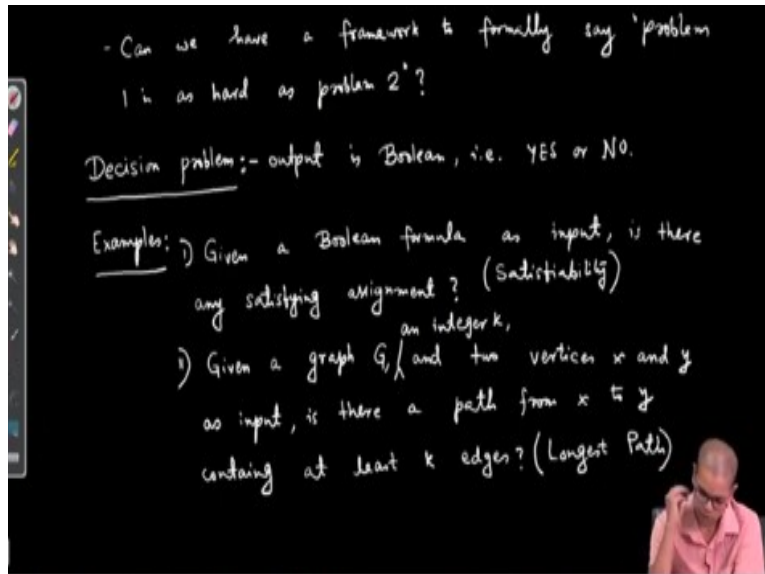 - Can we have a framework to formally say "problem
1 is as hard as problem 2"?
Decision problem:- output is Boolean, i.e. YES or NO.
Examples: i) Given a Boolean formula as input, is there
any satisfying assignment? (Satisfiability)
an integer k,
ii) Given a graph G, and two vertices x and y
as input, is there a path from x to y
containg at least k edges? (Longest Path)